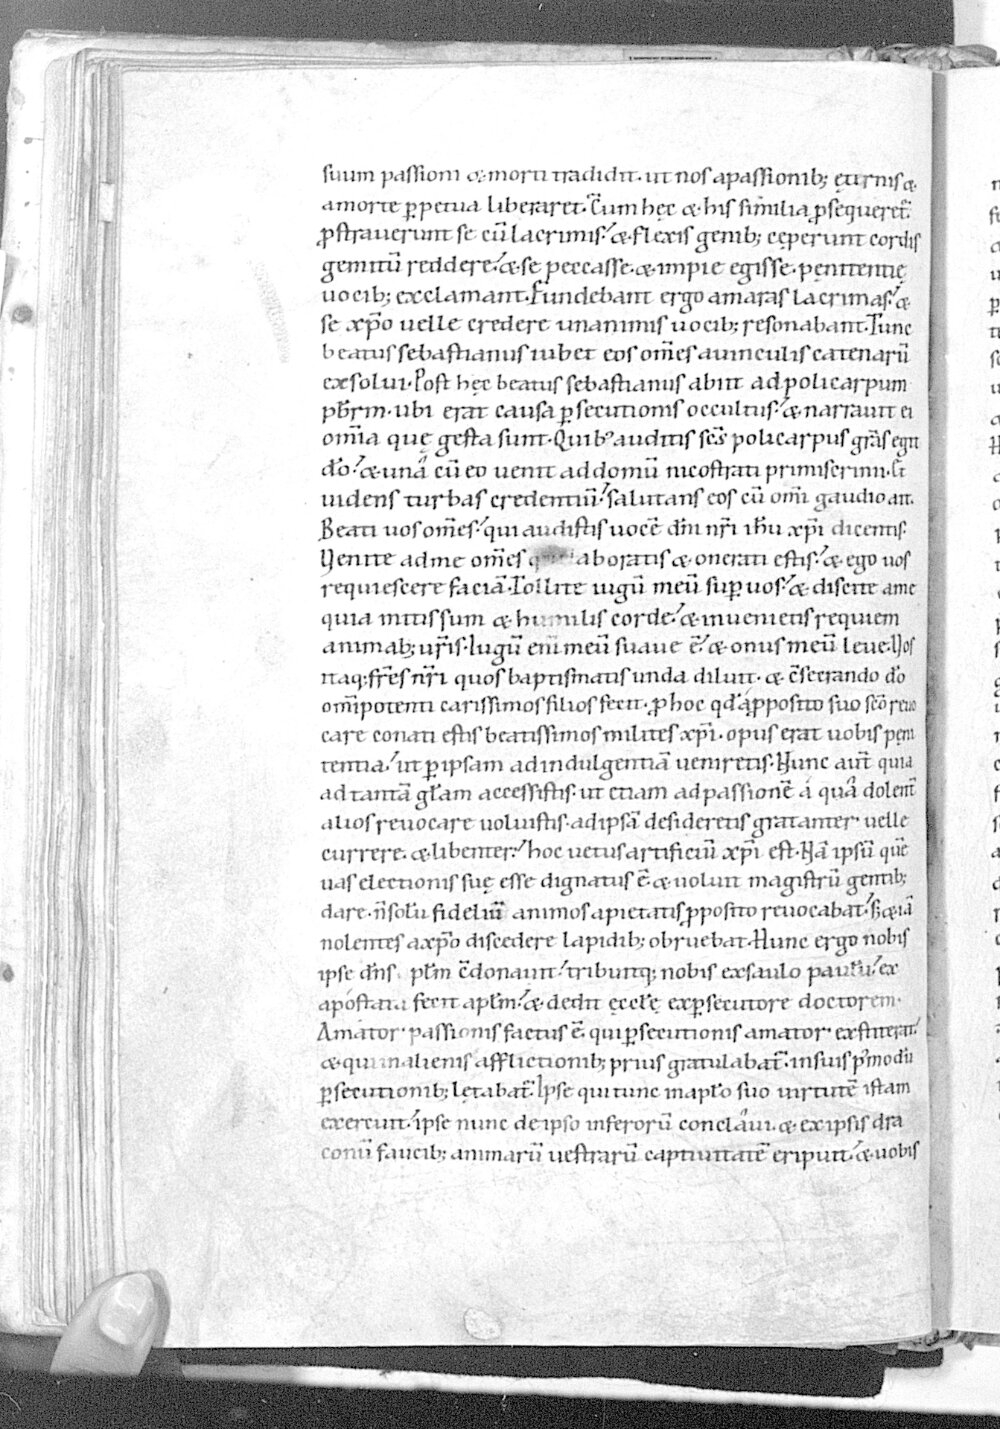 suum passioni & morti tradidit. ut nos apassionib; ęternis &
amorte ꝑpetua liberaret. Cum hęc & his similia ꝓsequeret̄.
ꝓstraverunt se cū lacrimis. & flexis genib; cęperunt cordis
gemitū reddere. & se peccasse. & impie egisse. pęnitentię
uocib; exclamant. Fundebant ergo amaras lacrimas. &
se xp̄o uelle credere unanimis uocib; resonabant. Tunc
beatus sebastianus iubet eos om̄es auinculis catenarū
exsolui. Post hęc beatus sebastianus abiit ad policarpum
pb̄rm. ubi erat causa ꝑsecutionis occultus. & narrauit ei
om̄ia quę gesta sunt. Quib' auditis sc̄s policarpus gr̄as egit
d̄o. & unā cū eo uenit addomū nicostrati primiscrinii. Et
uidens turbas credentiū. salutans eos cū om̄i gaudio ait.
Beati uos om̄es. qui audistis uocē dn̄i nr̄i ih̄u xp̄i dicentis.
Venite adme om̄es qui laboratis & onerati estis. & ego uos
requiescere faciā. Tollite iugū meū suꝑ uos. & discite ame
quia mitis sum & humilis corde. & inuenietis requiem
animab; ur̄is. Iugū eni̅ meū suaue ē. & onus meū leue. Nos
itaq; fr̄es nr̄i quos baptismatis unda diluit. & c̄secrando d̄o
om̄ipotenti carissimos filios fecit. ꝓ hoc qd̄ aꝓposito suo sc̄o reuo
care conati estis beatissimos milites xp̄i. opus erat uobis pęni
tentia. ut ꝑ ipsam ad indulgentiā ueniretis. Nunc aut̄ quia
ad tantā gl̄am accessistis. ut etiam ad passionē a qua dolent̄
alios reuocare uoluistis. ad ipsā desideretis gratanter uelle
currere. & libenter. hoc uetus artificiū xp̄i est. Nā ipsū quē
uas electionis suę esse dignatus ē. & uoluit magistrū gentib;
dare. n̄ solū fideliū animos apietatis ꝓposito reuocabat. s; & iā
nolentes axp̄o discedere lapidib; obruebat. Hunc ergo nobis
ipse dn̄s pl̄m c̄donauit. tribuitq; nobis exsaulo paulū. ex
apostata fecit apl̄m. & dedit ęccl̄ę exꝑsecutore doctorem.
Amator passionis factus ē. qui ꝑsecutionis amator exstiterat.
& qui inalienis afflictionib; prius gratulabat̄. insuis p̄modū
ꝑsecutionib; lętabat̄. Ipse qui tunc inapl̄o suo uirtutē istam
exercuit. ipse nunc de ipso inferorū conclaui. & ex ipsis dra
conū faucib; animarū uestrarū captiuitatē eripuit. & uobis